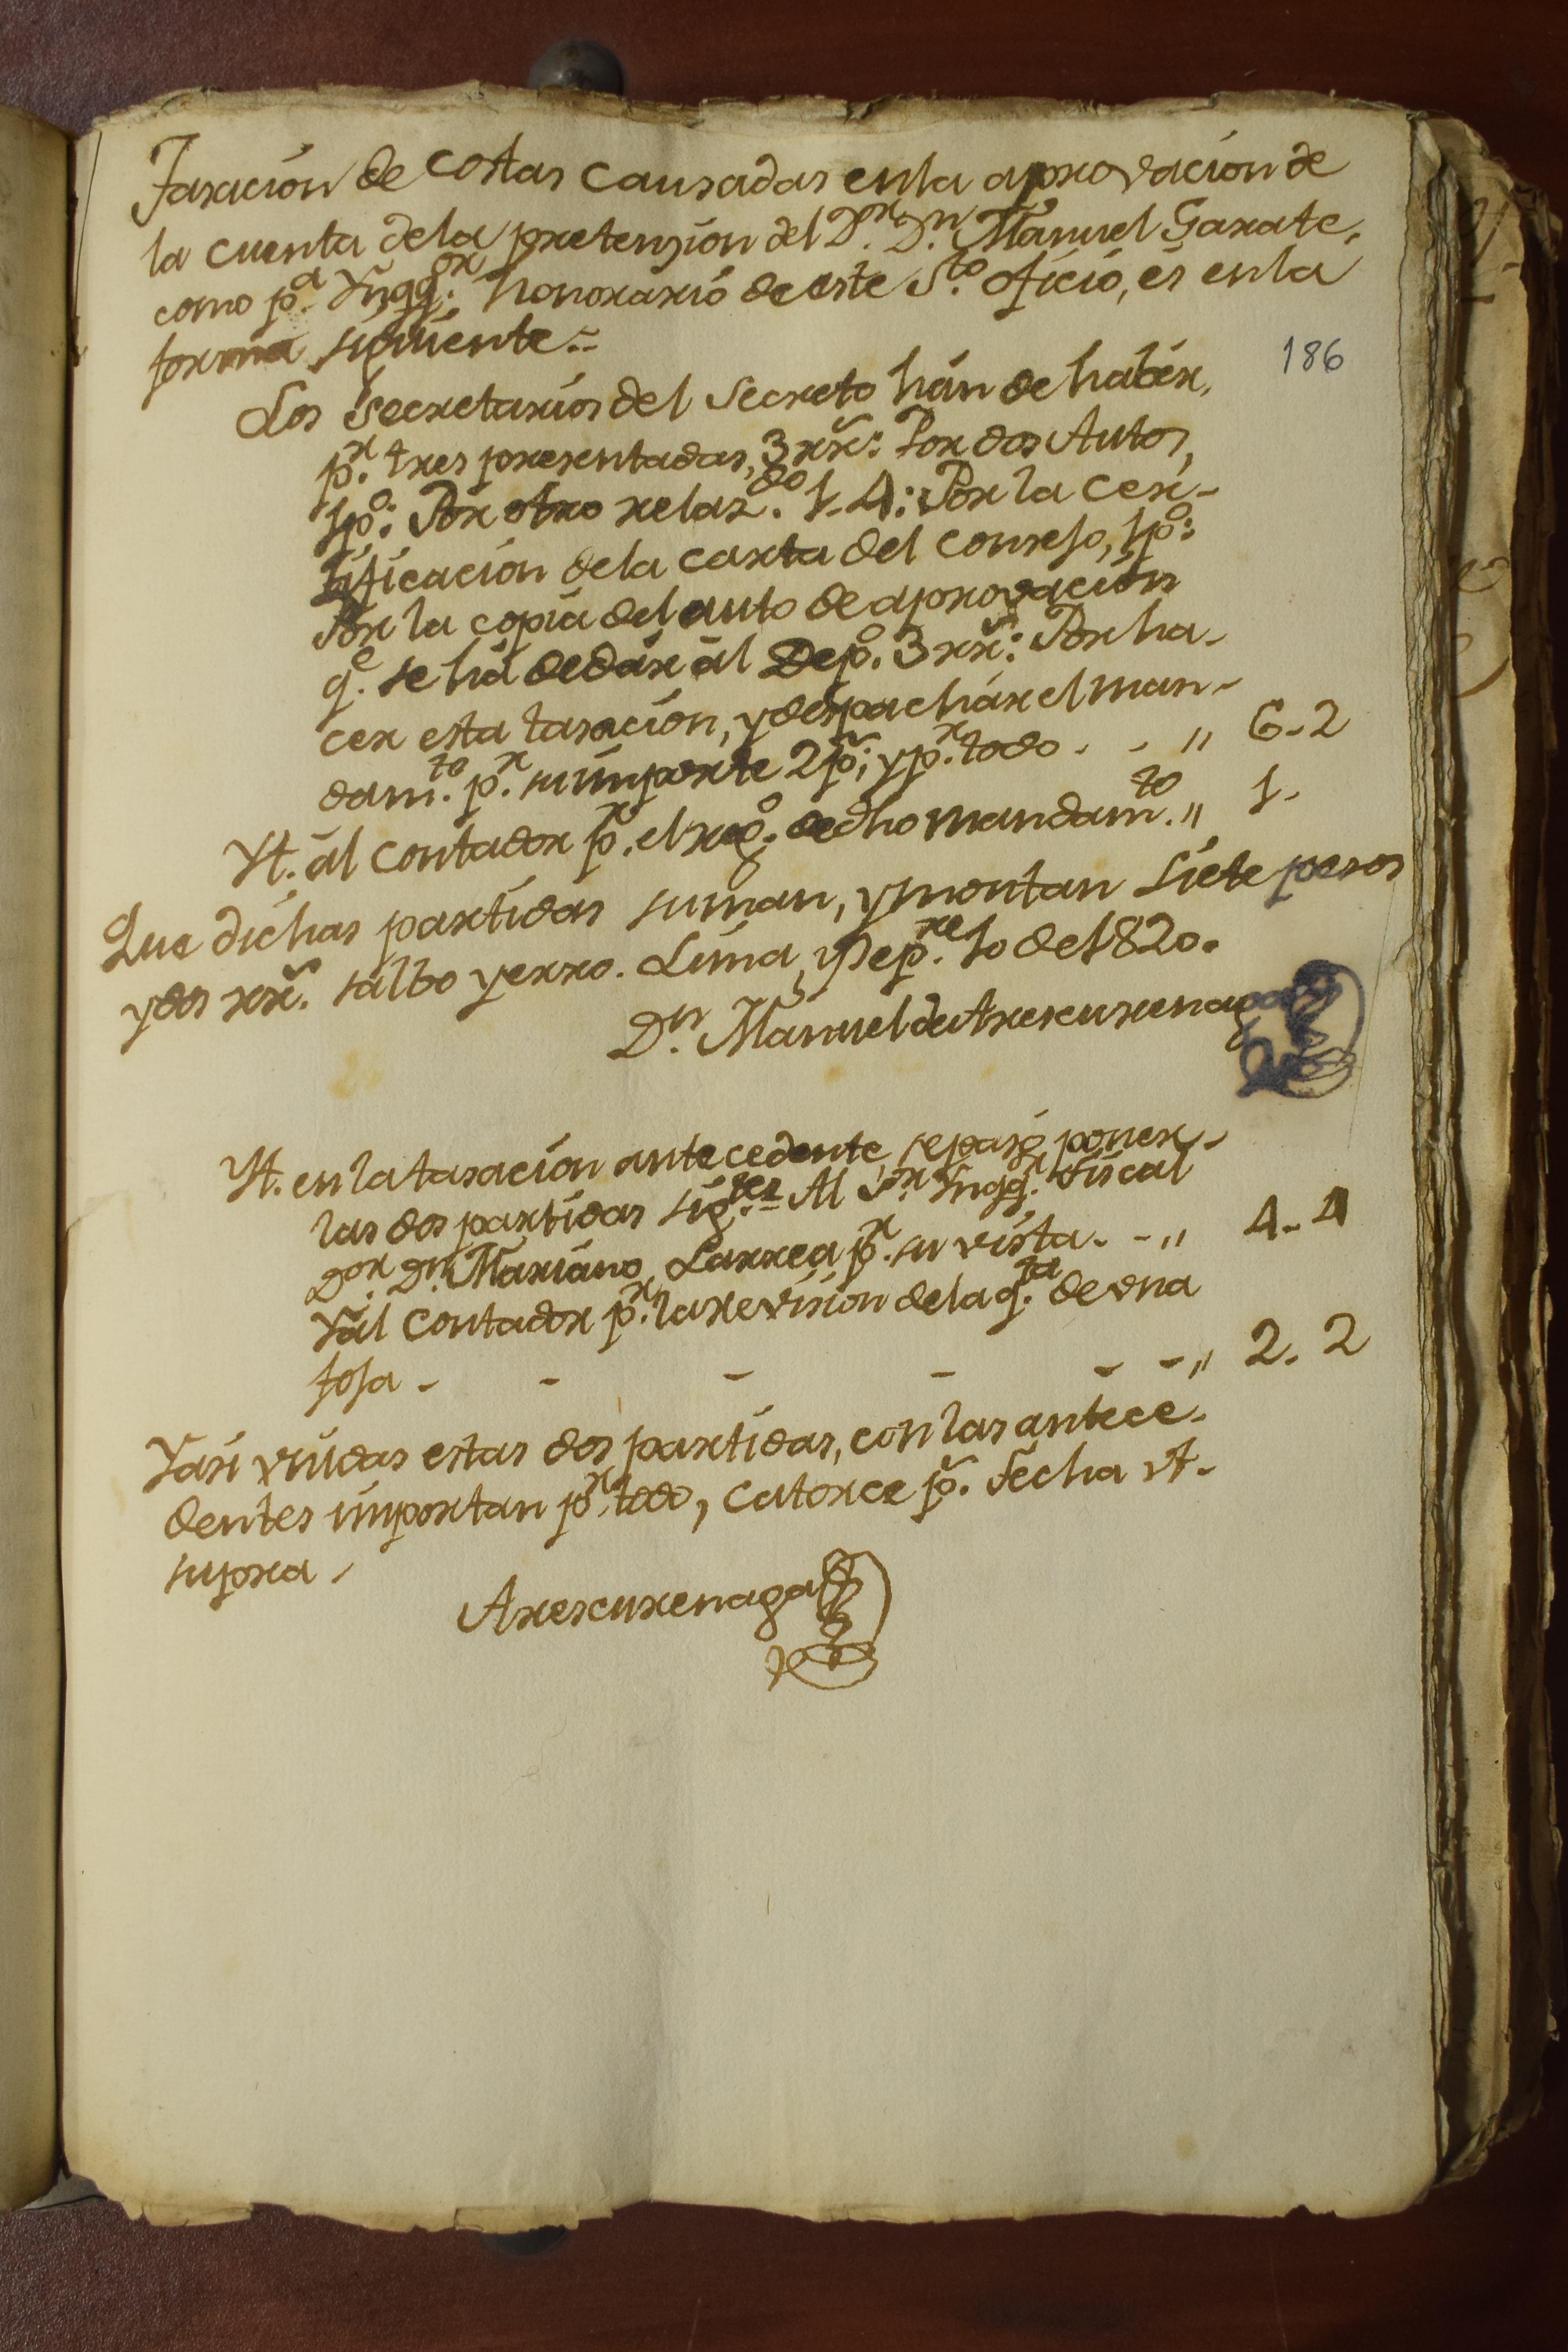 Tasacion de costas causadas enla aprovacion de
la cuenta dela pretension del D.r D.n Manuel Garate,
como p.a Ynqq.or honorario de este S.to oficio, es enla
forma siguiente =
186
Los Secretarios del Secreto hán de habér,
p.r tres presentadas, 3 rr.s: Por dos Autos,
1 p.o: Por otro relaz.do 1-4: Por la cer-
tificacion dela carta del consejo, 1 p.o:
Por la copia del auto de aprovacion
q.e se há de dár ál Dep.o 3 rr.s: Por ha-
cer esta tasacion, y despachár el man-
dam.to p.r su importe 2 p.s; y p.r todo - - „ 6-2
Yt. ál contador p.r el reg.o de dho mandam.to „ 1-
Que dichas partidas suman, y montan siete pesos
y dos rr.s salbo yerro. Lima, y Sep.re 10 de 1820.
D.n Manuel de Arescurenaga
Yt. en la tasacion antecedente se pasó poner
las dos partidas sig.tes Al S.r Ynqq.r Fiscal
D.or D.n Mariano Larrea p.r su vista - - „ 4-4
Yál Contador p.r la revision dela q.ta de vna
foja - - - - - - „ 2. 2
Yasi vnidas estas dos partidas, con las antece-
dentes importan p.r todo, catorce p.s Fecha vt-
supra
Arescurenaga